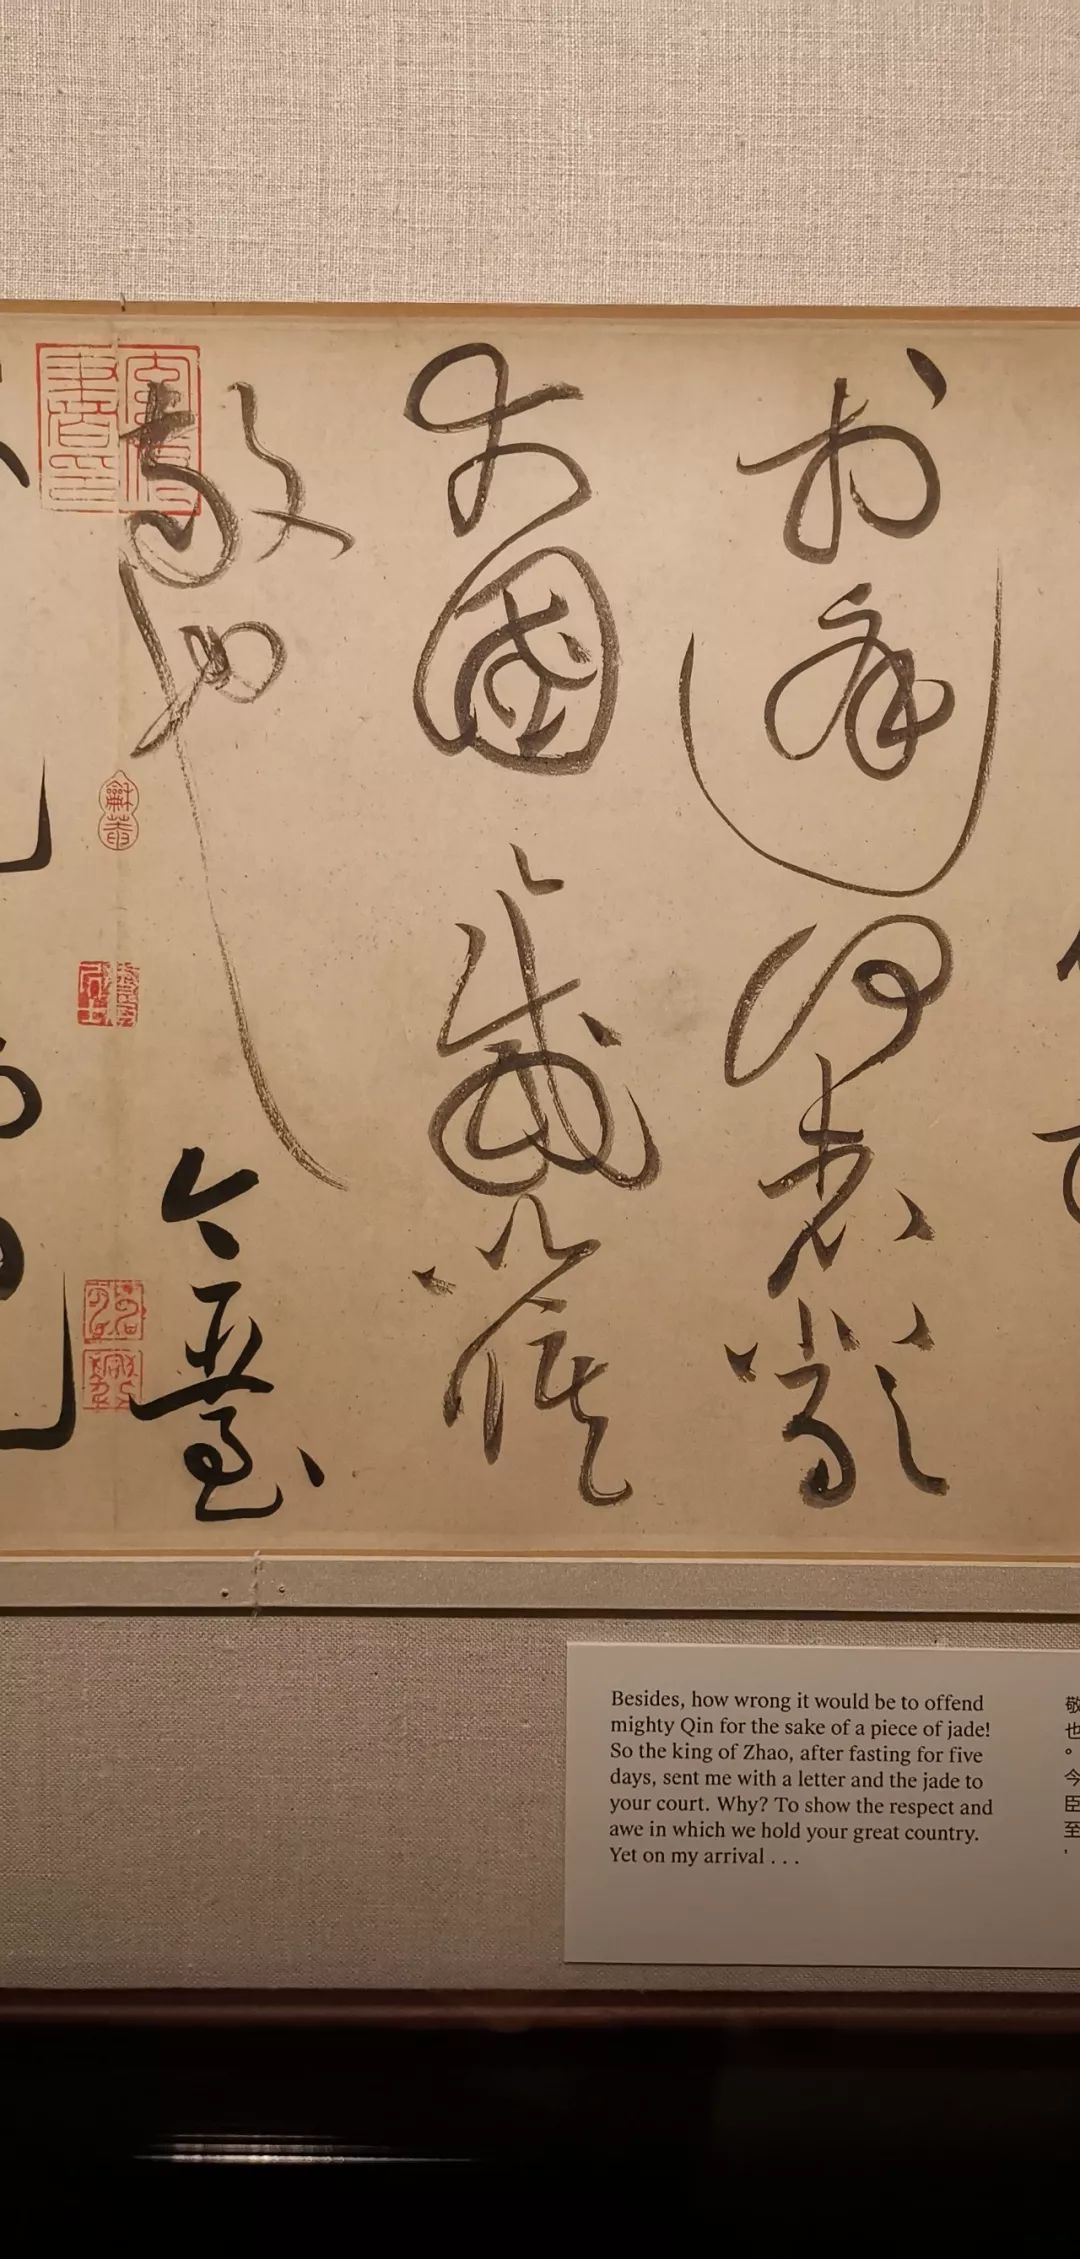 於庭何者嚴
大國之威以修
敬也今臣至
Besides, how wrong it would be to offend
mighty Qin for the sake of a piece of jade!
So the king of Zhao, after fasting for five
days, sent me with a letter and the jade to
your court. Why? To show the respect and
awe in which we hold your great country.
Yet on my arrival . . .
敬也。今臣至,